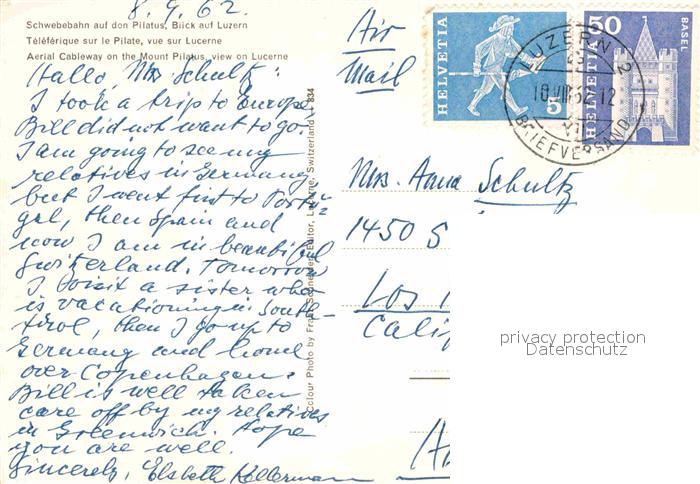 8.9.62.
Schwebebahn auf den Pilatus, Blick auf Luzern
Téléférique sur le Pilate, vue sur Lucerne
Aerial Cableway on the Mount Pilatus, view on Lucerne
Air
Mail
HELVETIA
5
HELVETIA
50
BASEL
LUZERN 2
BRIEFVERSAND
Hallo, Mrs Schultz:
I took a trip to Europe,
Bill did not want to go.
I am going to see my
relatives in Germany
but I went first to Portu-
gal, then Spain and
now I am in beautiful
Switzerland. Tomorrow
I visit a sister who
is vacationing in South-
tirol, then I go up to
Germany and home
over Copenhagen.
Bill is well taken
care off by my relatives
in Greenwich. Hope
you are well.
Sincerely, Elsbeth Kellermann
Colour Photo by Editor, Lucerne, Switzerland 834
Mrs. Anna Schultz
1450 S
Los
Calif
privacy protection
Datenschutz